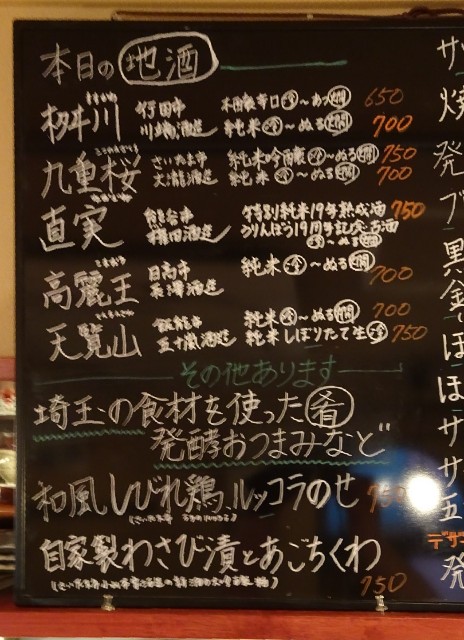 本日の地酒
ますかわ
桝川 行田市 本醸辛口冷〜あつ燗 650
川端酒造 純米冷〜ぬる燗 700
九重桜 さいたま市 純米吟醸冷〜ぬる燗 750
大瀧酒造 純米冷〜ぬる燗 700
直実 熊谷市 特別純米19号熟成酒 750
権田酒造 りんぼう19周年記念古酒
冷〜ぬる燗
こまおう
高麗王 日高市 純米冷〜ぬる燗 700
長澤酒造
天覧山 飯能市 純米冷〜ぬる燗 700
五十嵐酒造 純米しぼりたて生冷 750
その他あります
埼玉の食材を使った肴
発酵おつまみなど
和風しびれ鶏、ルッコラのせ 750
自家製わさび漬とあごちくわ
750
サ
焼
発
ブ
黒
金
ほ
ほ
サ
サ
五
デザ
発